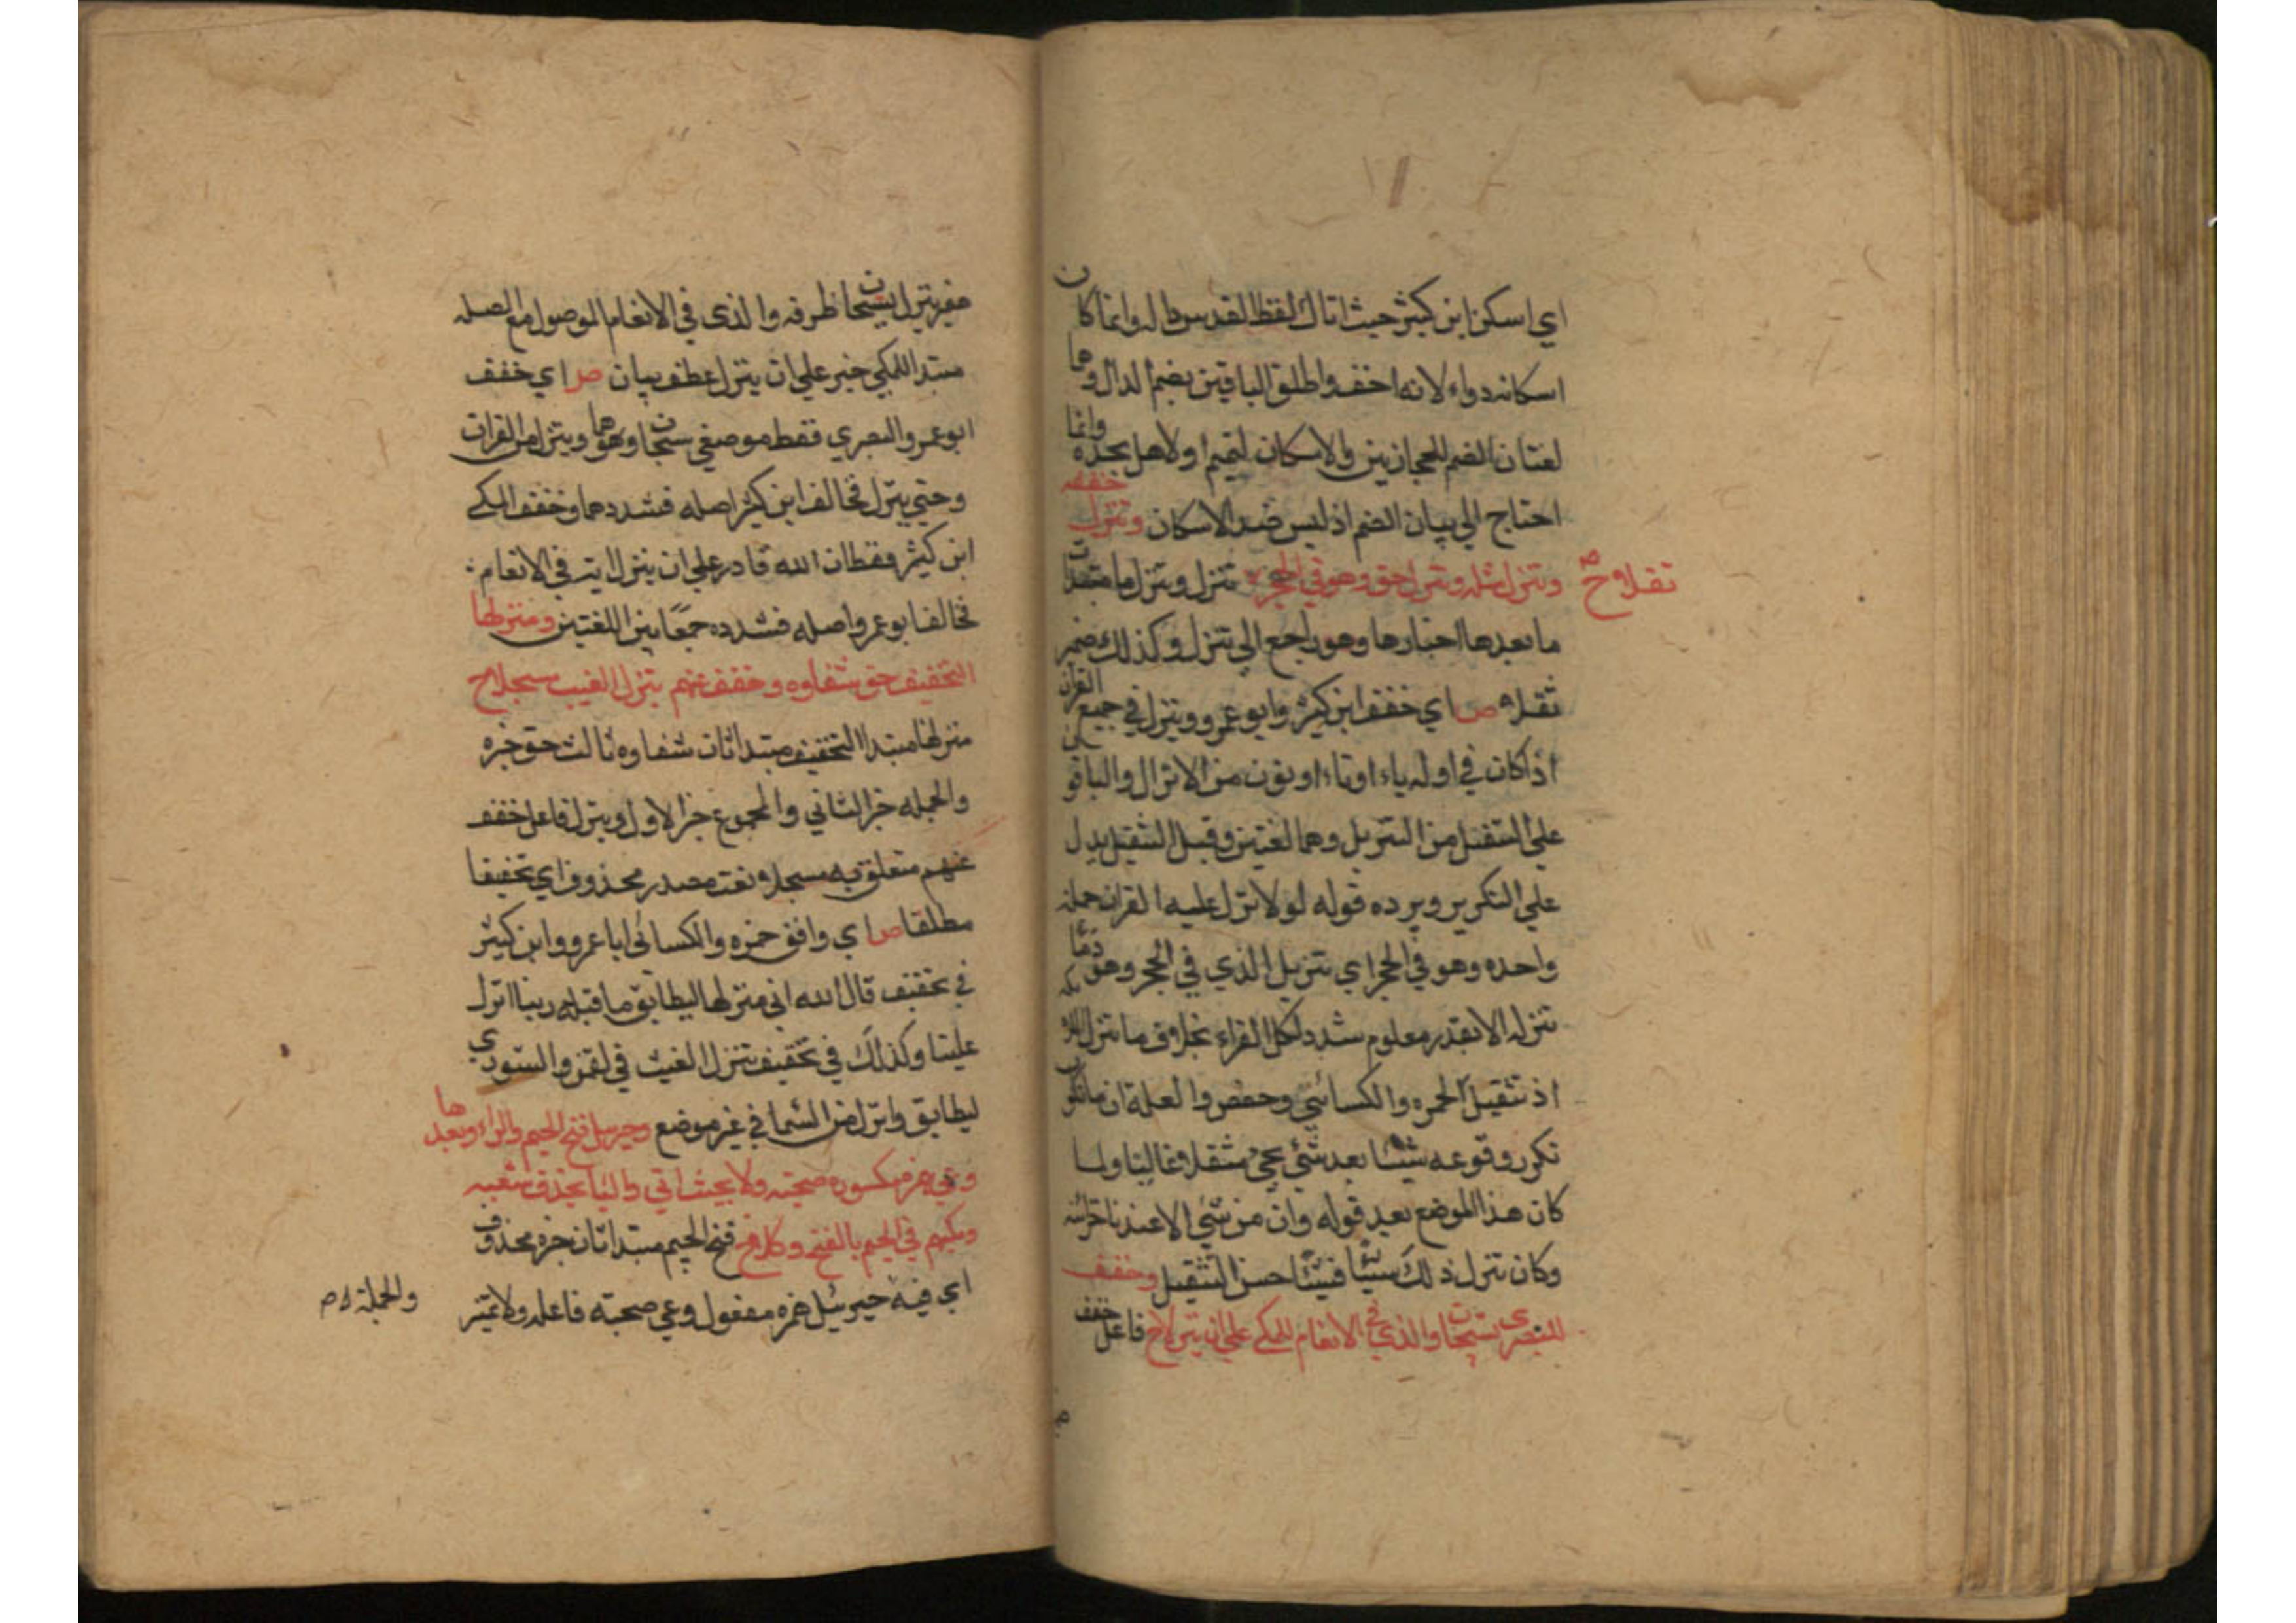 اي اسكن ابن كثير حيث اتاك لفظ القدس داله وانما كان
اسكانه دواء لانه اخف واطلق الباقين بضم الدال وهما
لغتان الضم للحجازيين والاسكان لتميم اولاهل نجد وانما
احتاج الي بيان الضم اذ ليس ضد الاسكان وتنزل خففه
وتنزل مثله وتنزل حق وهو في الحجر ثقلا ح تنزل وتنزل ما مبتدات
ما بعدها اخبارها وهو راجع الي تنزل وكذلك ضمير
ثقلا ص اي خفف ابن كثير وابو عمرو وينزل في جميع القران
اذا كان في اوله ياء او تاء او نون من الانزال والباقون
علي التثقيل من التنزيل وهما لغتين وقيل الثقيل يدل
علي التكرير ويرده قوله لولا نزل عليه القران جملة
واحده وهو في الحجر اي تنزيل الذي في الحجر وهو وما
ننزله الا بقدر معلوم شدد لكل القراء بخلاف ما ننزل الملائكة
اذ تثقيل الحمزه والكسائي وحفص والعلة ان ما تكون
تكرر وقوعه شيئا بعد شئي يجئ مثقلا وغالبا ولما
كان هذا الموضع بعد قوله وان من شئي الا عندنا خزائنه
وكان تنزل ذلك شيئا فشيئا حسن التثقيل وخفف
للبصري بسبحان والذي في الانعام للمكي علي ان ينزلا ح فاعل خفف
ضمير ينزل بسبحان ظرفه والذي في الانعام الموصول مع الصله
مبتدا للمكي خبر علي ان ينزل عطف بيان ص اي خفف
ابو عمرو البصري فقط موضعي سبحان وهما وينزل من القران
وحتي ينزل فخالف ابن كثير اصله فشددهما وخفف المكي
ابن كثير فقط ان الله قادر علي ان ينزل اية في الانعام
فخالف ابو عمرو اصله فشدده جمعا بين اللغتين ومنزلها
التخفيف حق شفاوه وخفف عنهم ينزل الغيث مسجلا ح
منزلها مبتدا التخفيف مبتدا ثان شفاوه ثالث حق خبره
والجمله خبر الثاني والمجموع خبر الاول وينزل فاعل خفف
عنهم متعلق به مسجلا نعت مصدر محذوف اي تخفيفا
مطلقا ص اي وافق حمزه والكسائي ابا عمرو وابن كثير
في تخفيف قال الله اني منزلها ليطابق ما قبله ربنا انزل
علينا وكذلك في تخفيف تنزل الغيث في لقمن والشوري
ليطابق وانزل من السما في غير موضع وجبريل فتح الجيم والراء وبعدها
وعي همزة مكسوره صحبته ولا بحيث اتي واليا يحذف شعبه
ومكيهم في الجيم بالفتح وكلا ح فتح الجيم مبتدا ثان خبره محذوف
اي فيه جبرئيل همزه مفعول وعي صحبته فاعله ولا تميز
والجملة